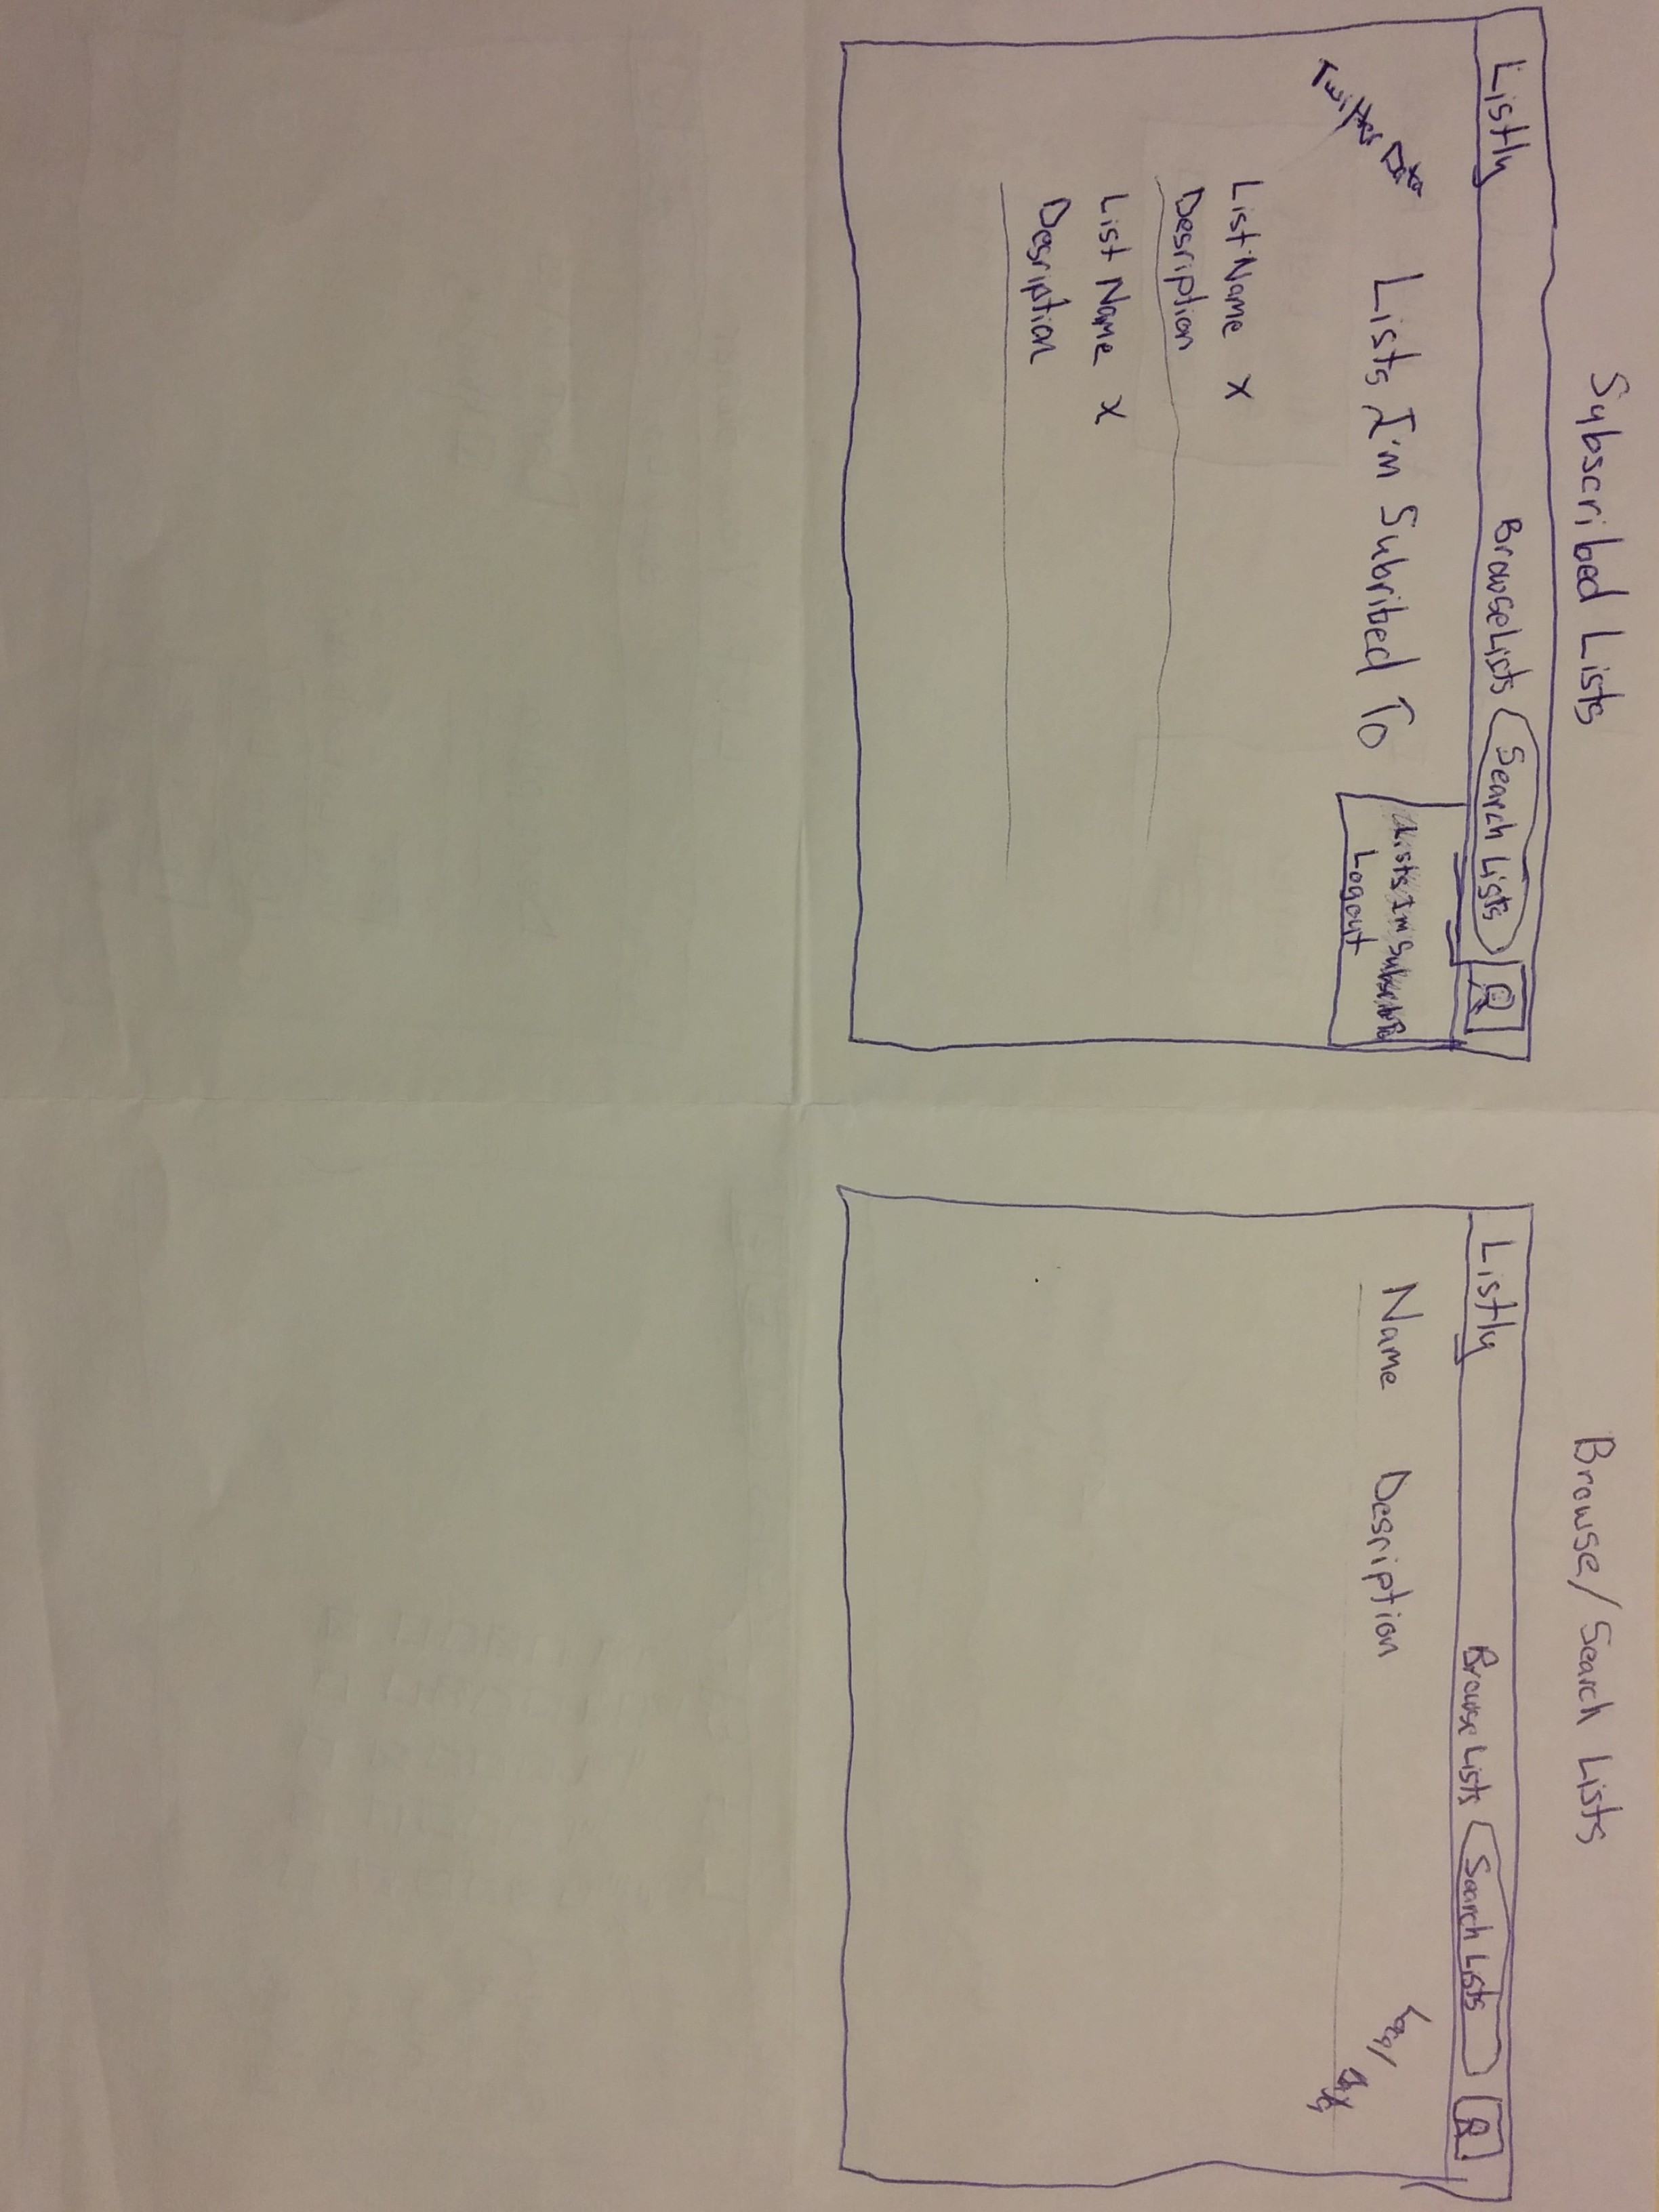 Subscribed Lists
Listly Browse Lists Search Lists
Twitter Data
Lists I'm Subribed To
Lists Im Subscrib To
Logout
List Name X
Desription
List Name X
Desription
Browse/Search Lists
Listly Browse Lists Search Lists
Name Desription
Local Data